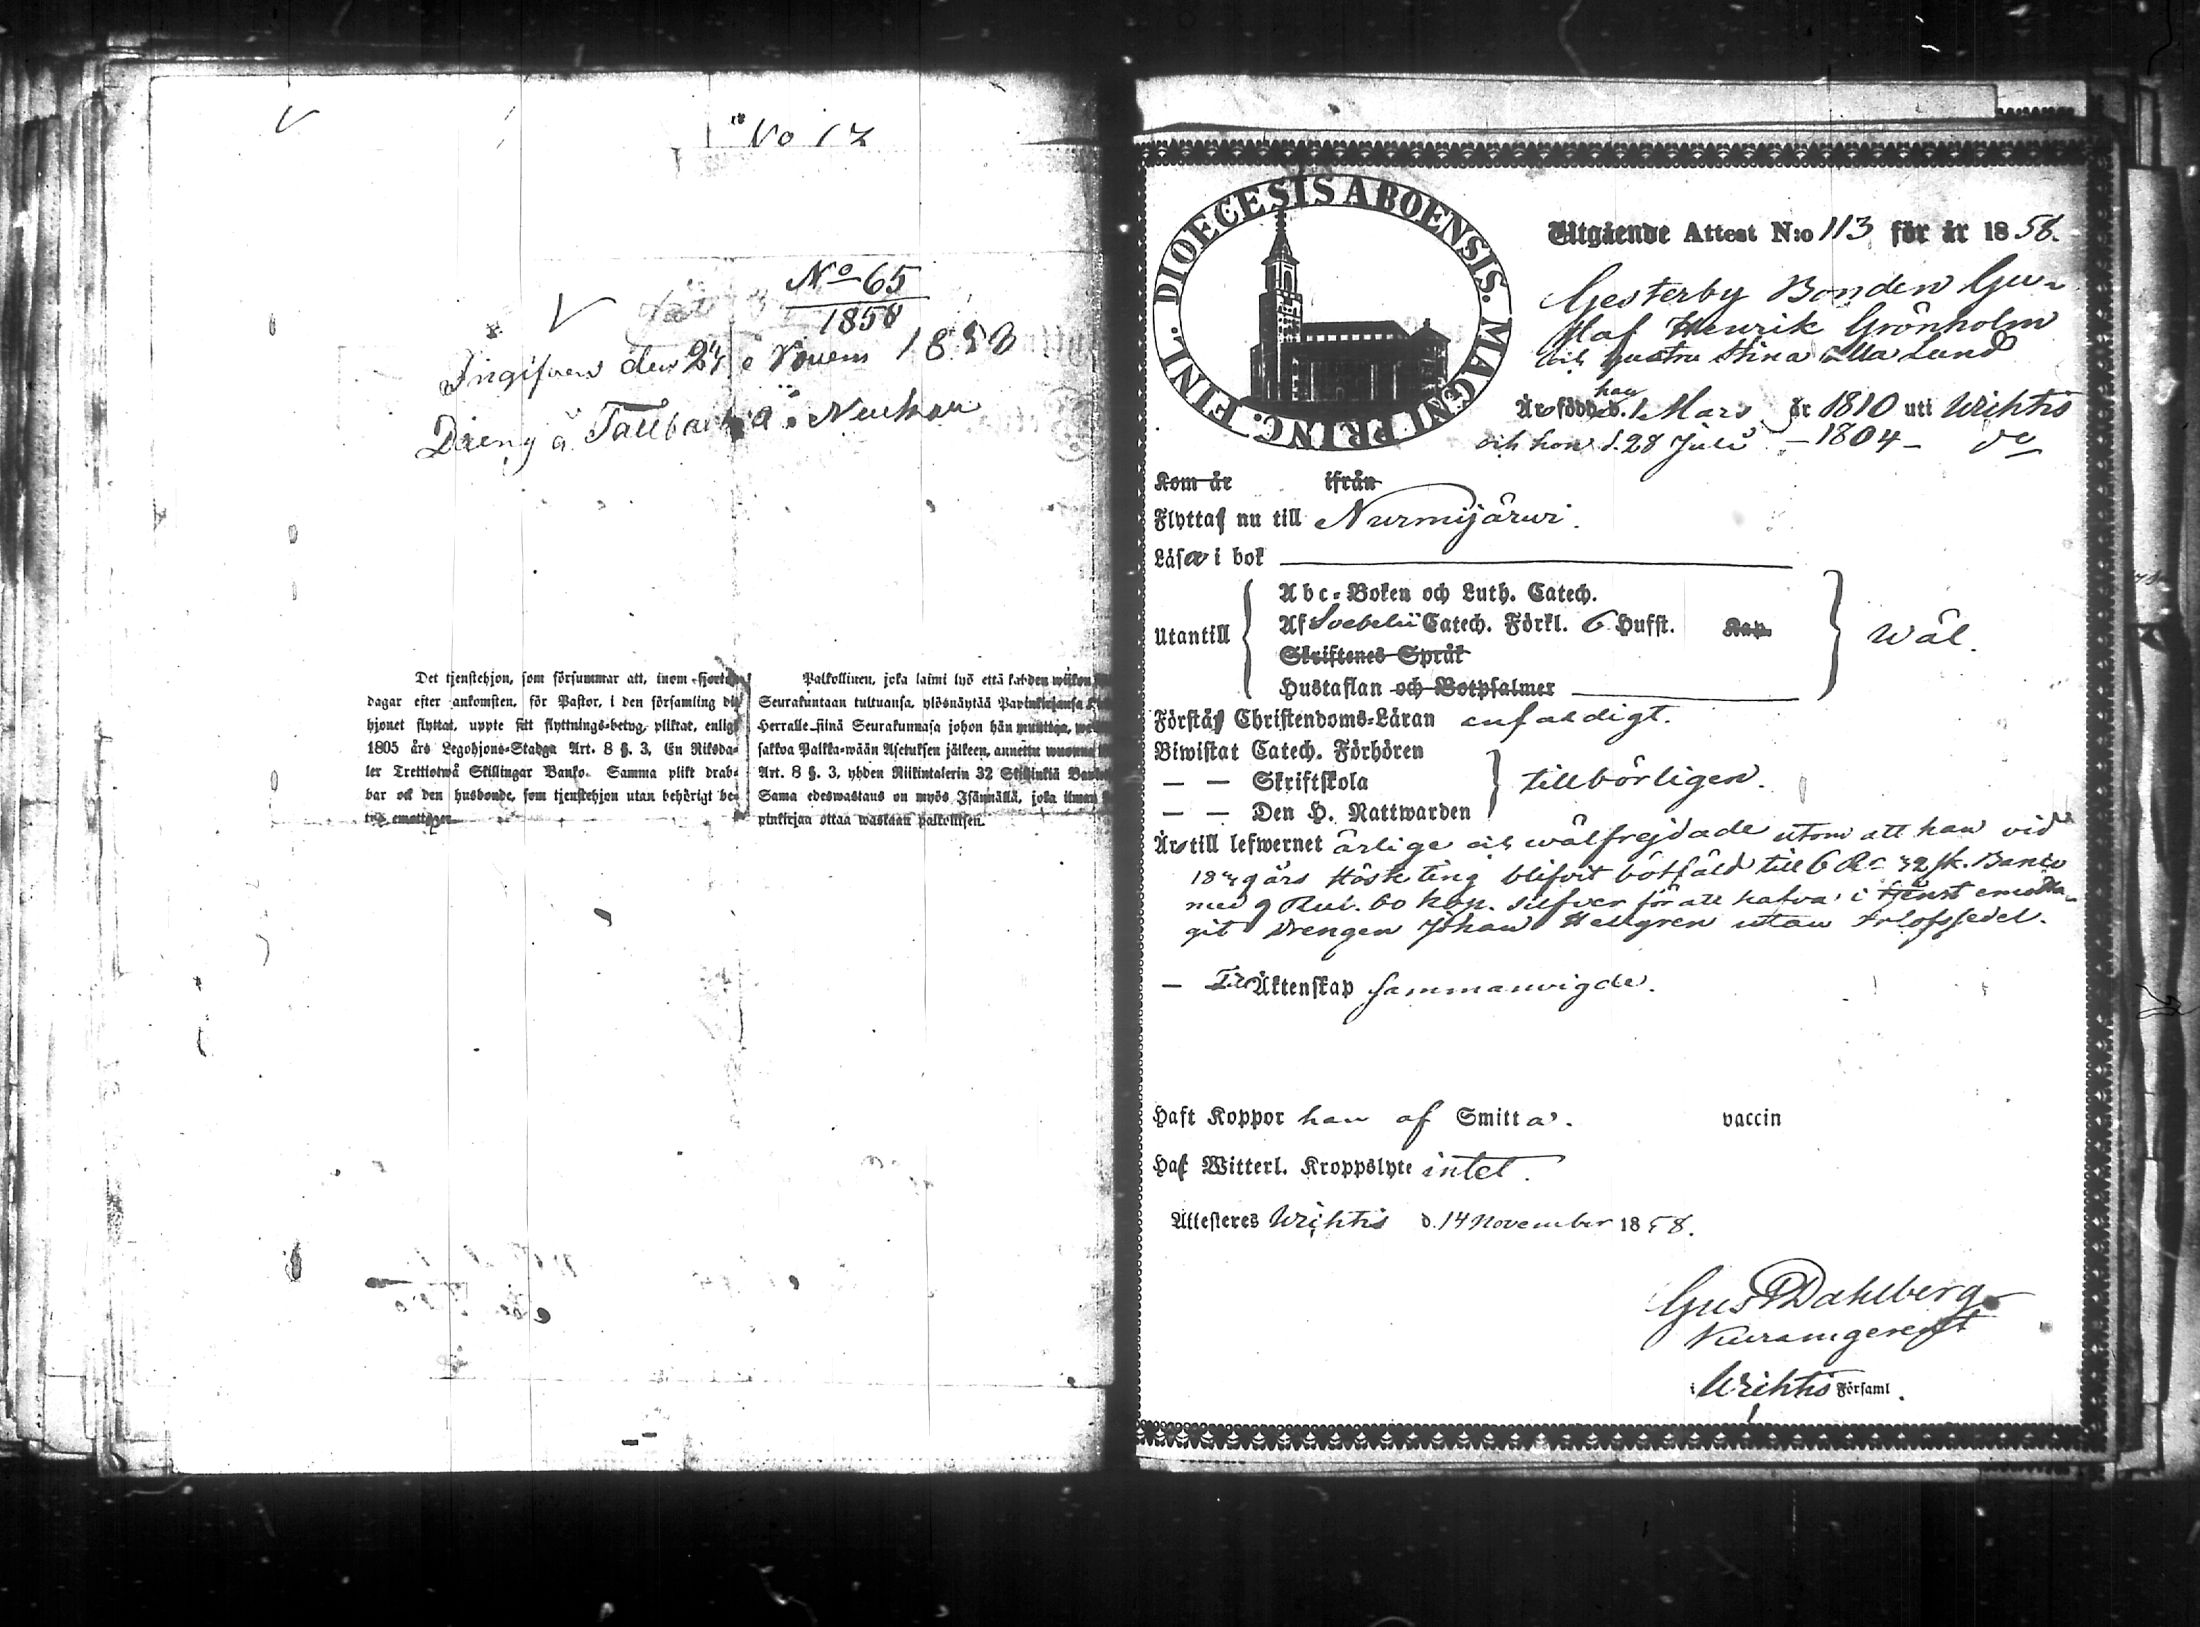 No 12
No 65
1858
Ingifven den 24 Novem 1858
Dräng å Tallbacka
Det tjenstehjon, som försummar att, inom fjorton
dagar efter ankomsten, för Pastor, i den församling dit
hjonet flyttat, uppte sitt flyttnings-betyg, pliktat, enligt
1805 års Legohjons-Stadga Art. 8 §. 3, En Riksda-
ler Trettiotwå Skillingar Banko. Samma plikt drab-
bar ock den husbonde, som tjenstehjon utan behörigt be-
tyg emottager
Palkollinen, joka laimi lyö että kahden wiikon
Seurakuntaan tultuansa, ylösnäytää Papinkirjansa
Herralle siinä Seurakunnasa johon hän muuttaa,
sakkoa Palkka-wään Asetuksen jälkeen, annettu wuonna
Art. 8 §. 3, yhden Riikintalerin 32 Skillinkiä Banko
Sama edeswastaus on myös Isännällä, joka ilman
pinkirjan ottaa wastaan palkollisen.
DIOECESIS ABOENSIS. MAGNI PRINC. FINL.
Utgående Attest N:o 113 för år 1858.
Gesterby Bonden Gu-
staf Henrik Grönholm
och hustru Stina Ulla Lund
han
Äro född d. 1 Mars år 1810 uti Wichtis
och hon d. 28 Juli – 1804 – do
Kom år ifrån
Flyttas nu till Nurmijärwi.
Läsa i bok
Utantill
Abc-Boken och Luth. Catech.
Af Svebelii Catech. Förkl. 6 Hufst. Kap.
Skriftenes Språk
Hustaflan och Botpsalmer
Wäl.
Förstå Christendoms-Läran enfaldigt.
Biwistat Catech. Förhören
— — Skriftskola
— — Den H. Nattwarden
tillbörligen.
Äro till lefwernet ärlige och wälfrejdade utom att han vid
1849 års Höste ting blifvit bötfäld till 6 R. 32 sk. Banco
med 9 Rub. 60 kop. silfver för att hafva i tjenst emotta-
git Drengen Johan Hellgren utan Orlofssedel.
— Till Äktenskap sammanvigde.
Haft Koppor han af Smitta. vaccin
Haf Witterl. Kroppslyte intet.
Attesteres Wichtis d. 14 November 1858.
Gust Dahlberg
i Wichtis Församl.